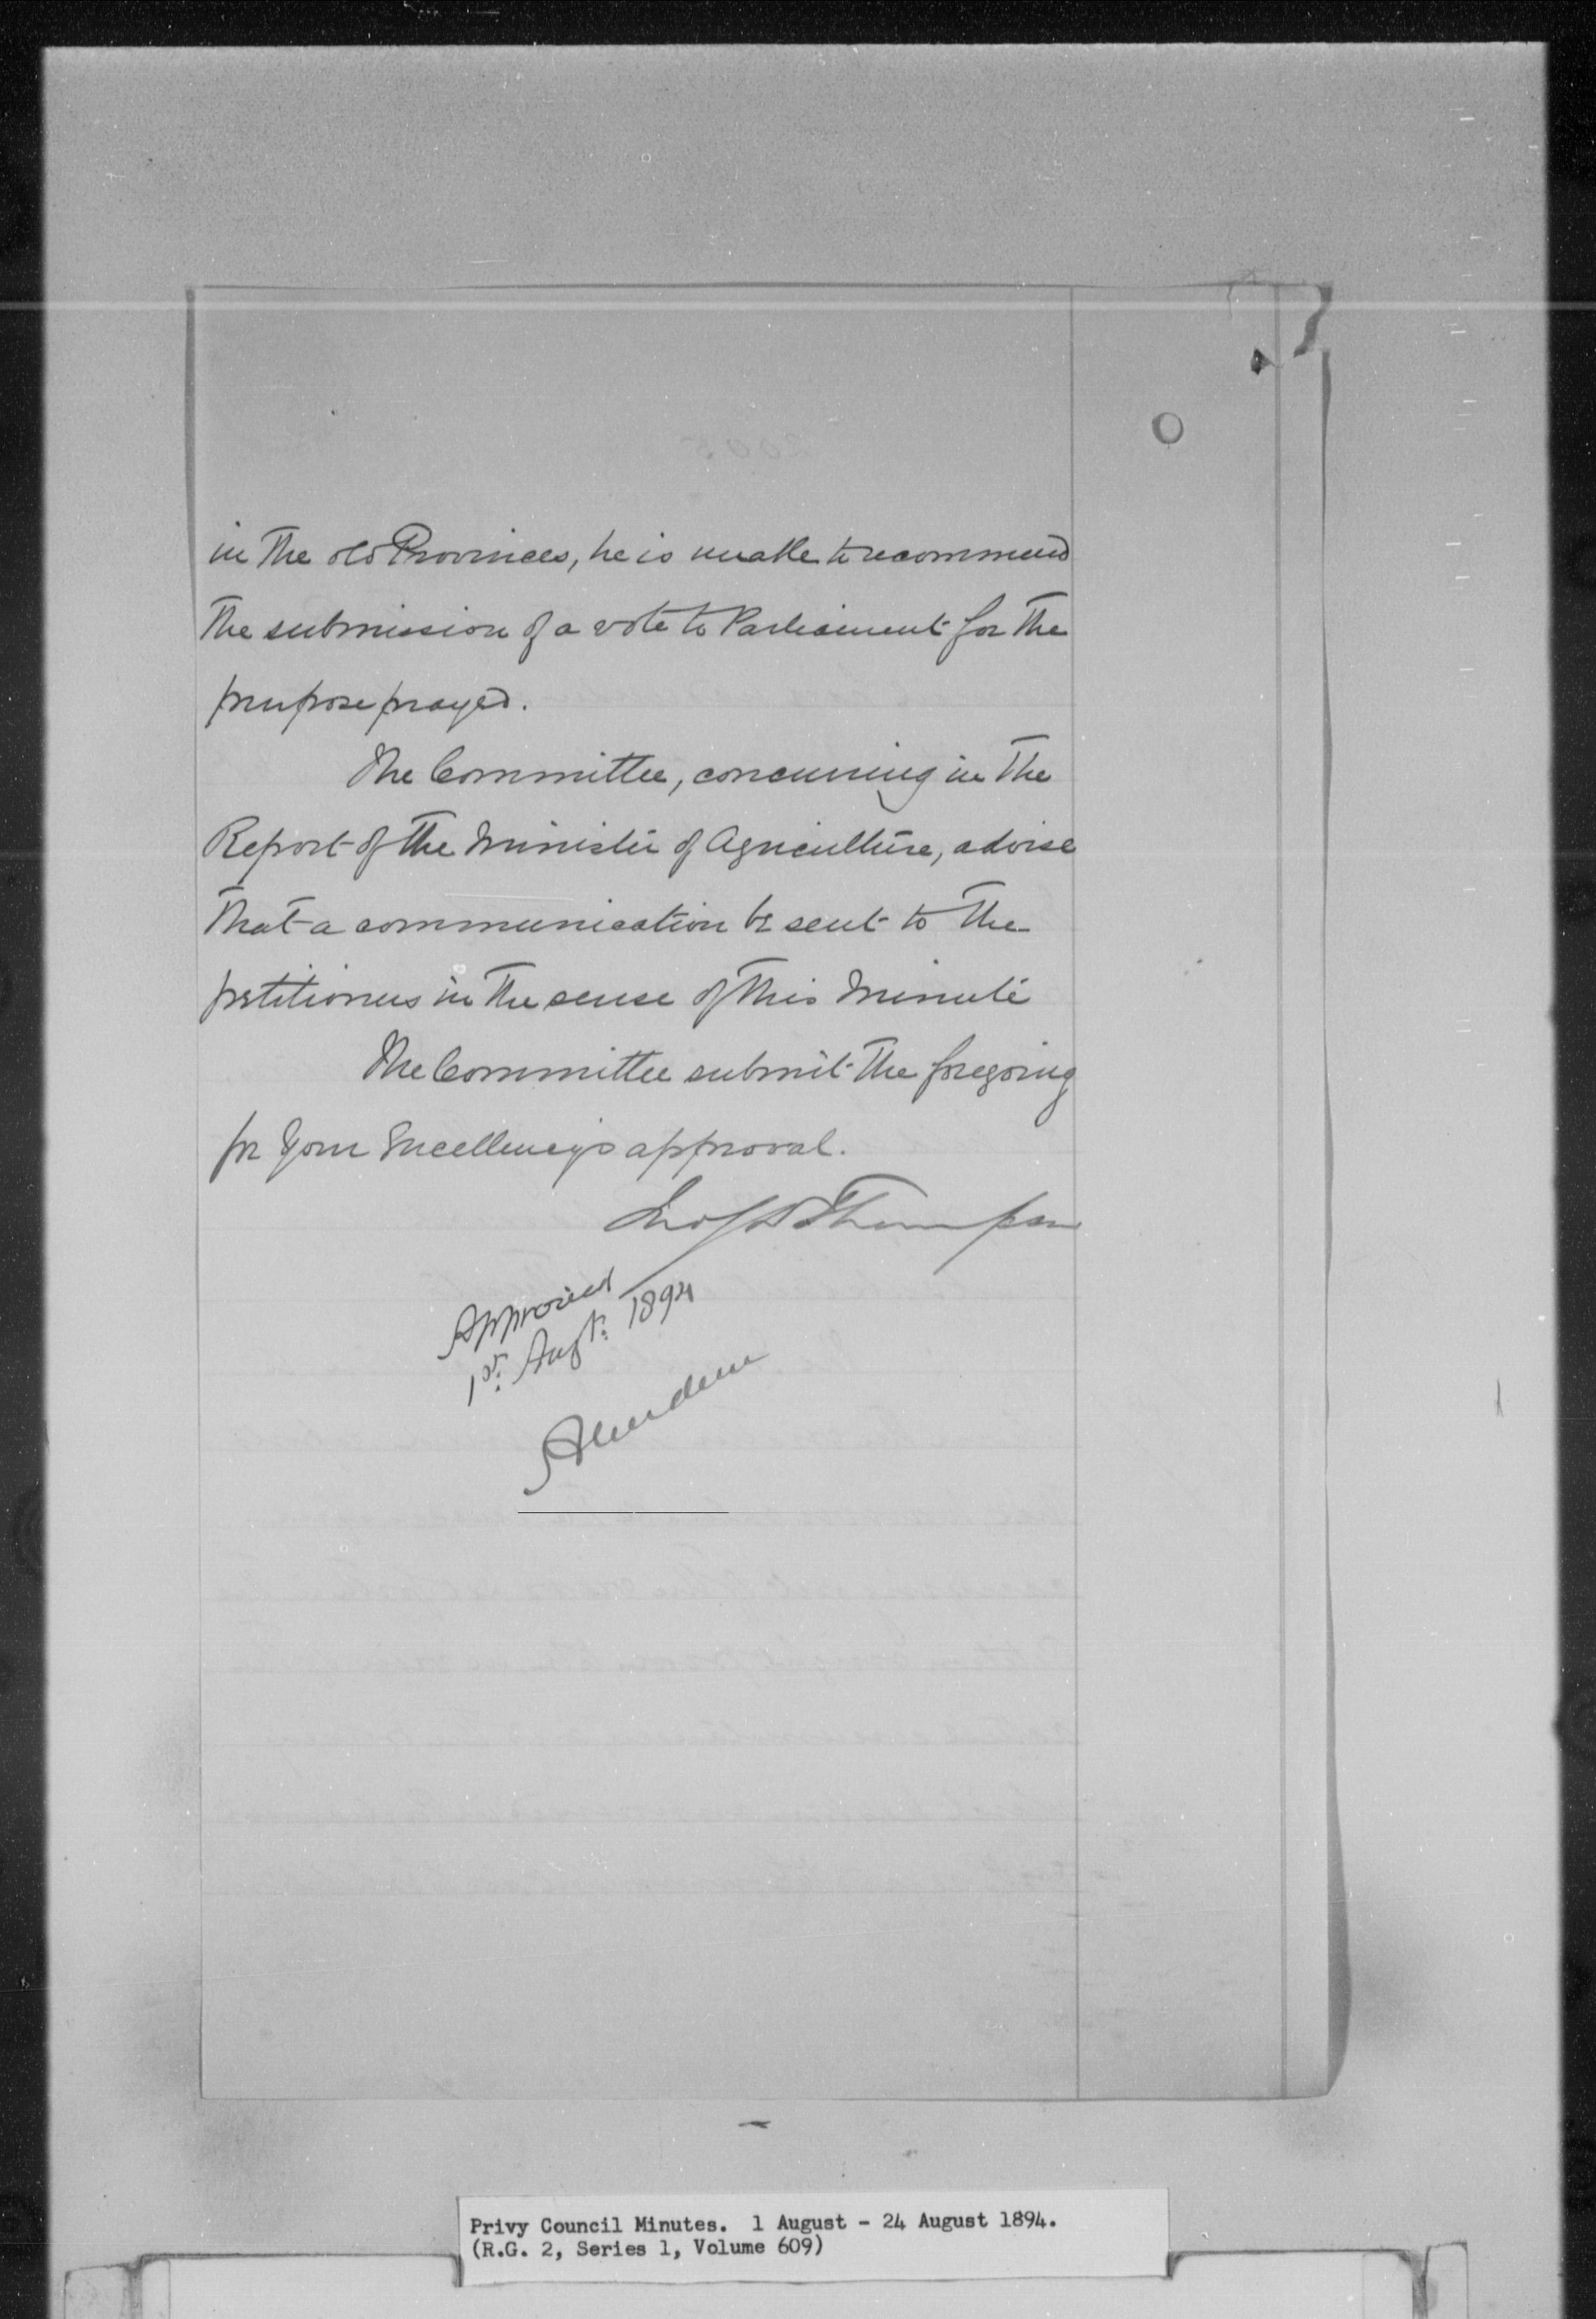 in the old Provinces, he is unable to recommend
the submission of a vote to Parliament for the
purpose prayed.
The Committee, concurring in the
Report of the Minister of Agriculture, advise
that a communication be sent to the
petitioners in the sense of this Minute
The Committee submit the foregoing
for Your Excellency's approval.
Jno S D Thompson
Approved
1st Augt. 1894
Aberdeen
Privy Council Minutes. 1 August - 24 August 1894.
(R.G. 2, Series 1, Volume 609)